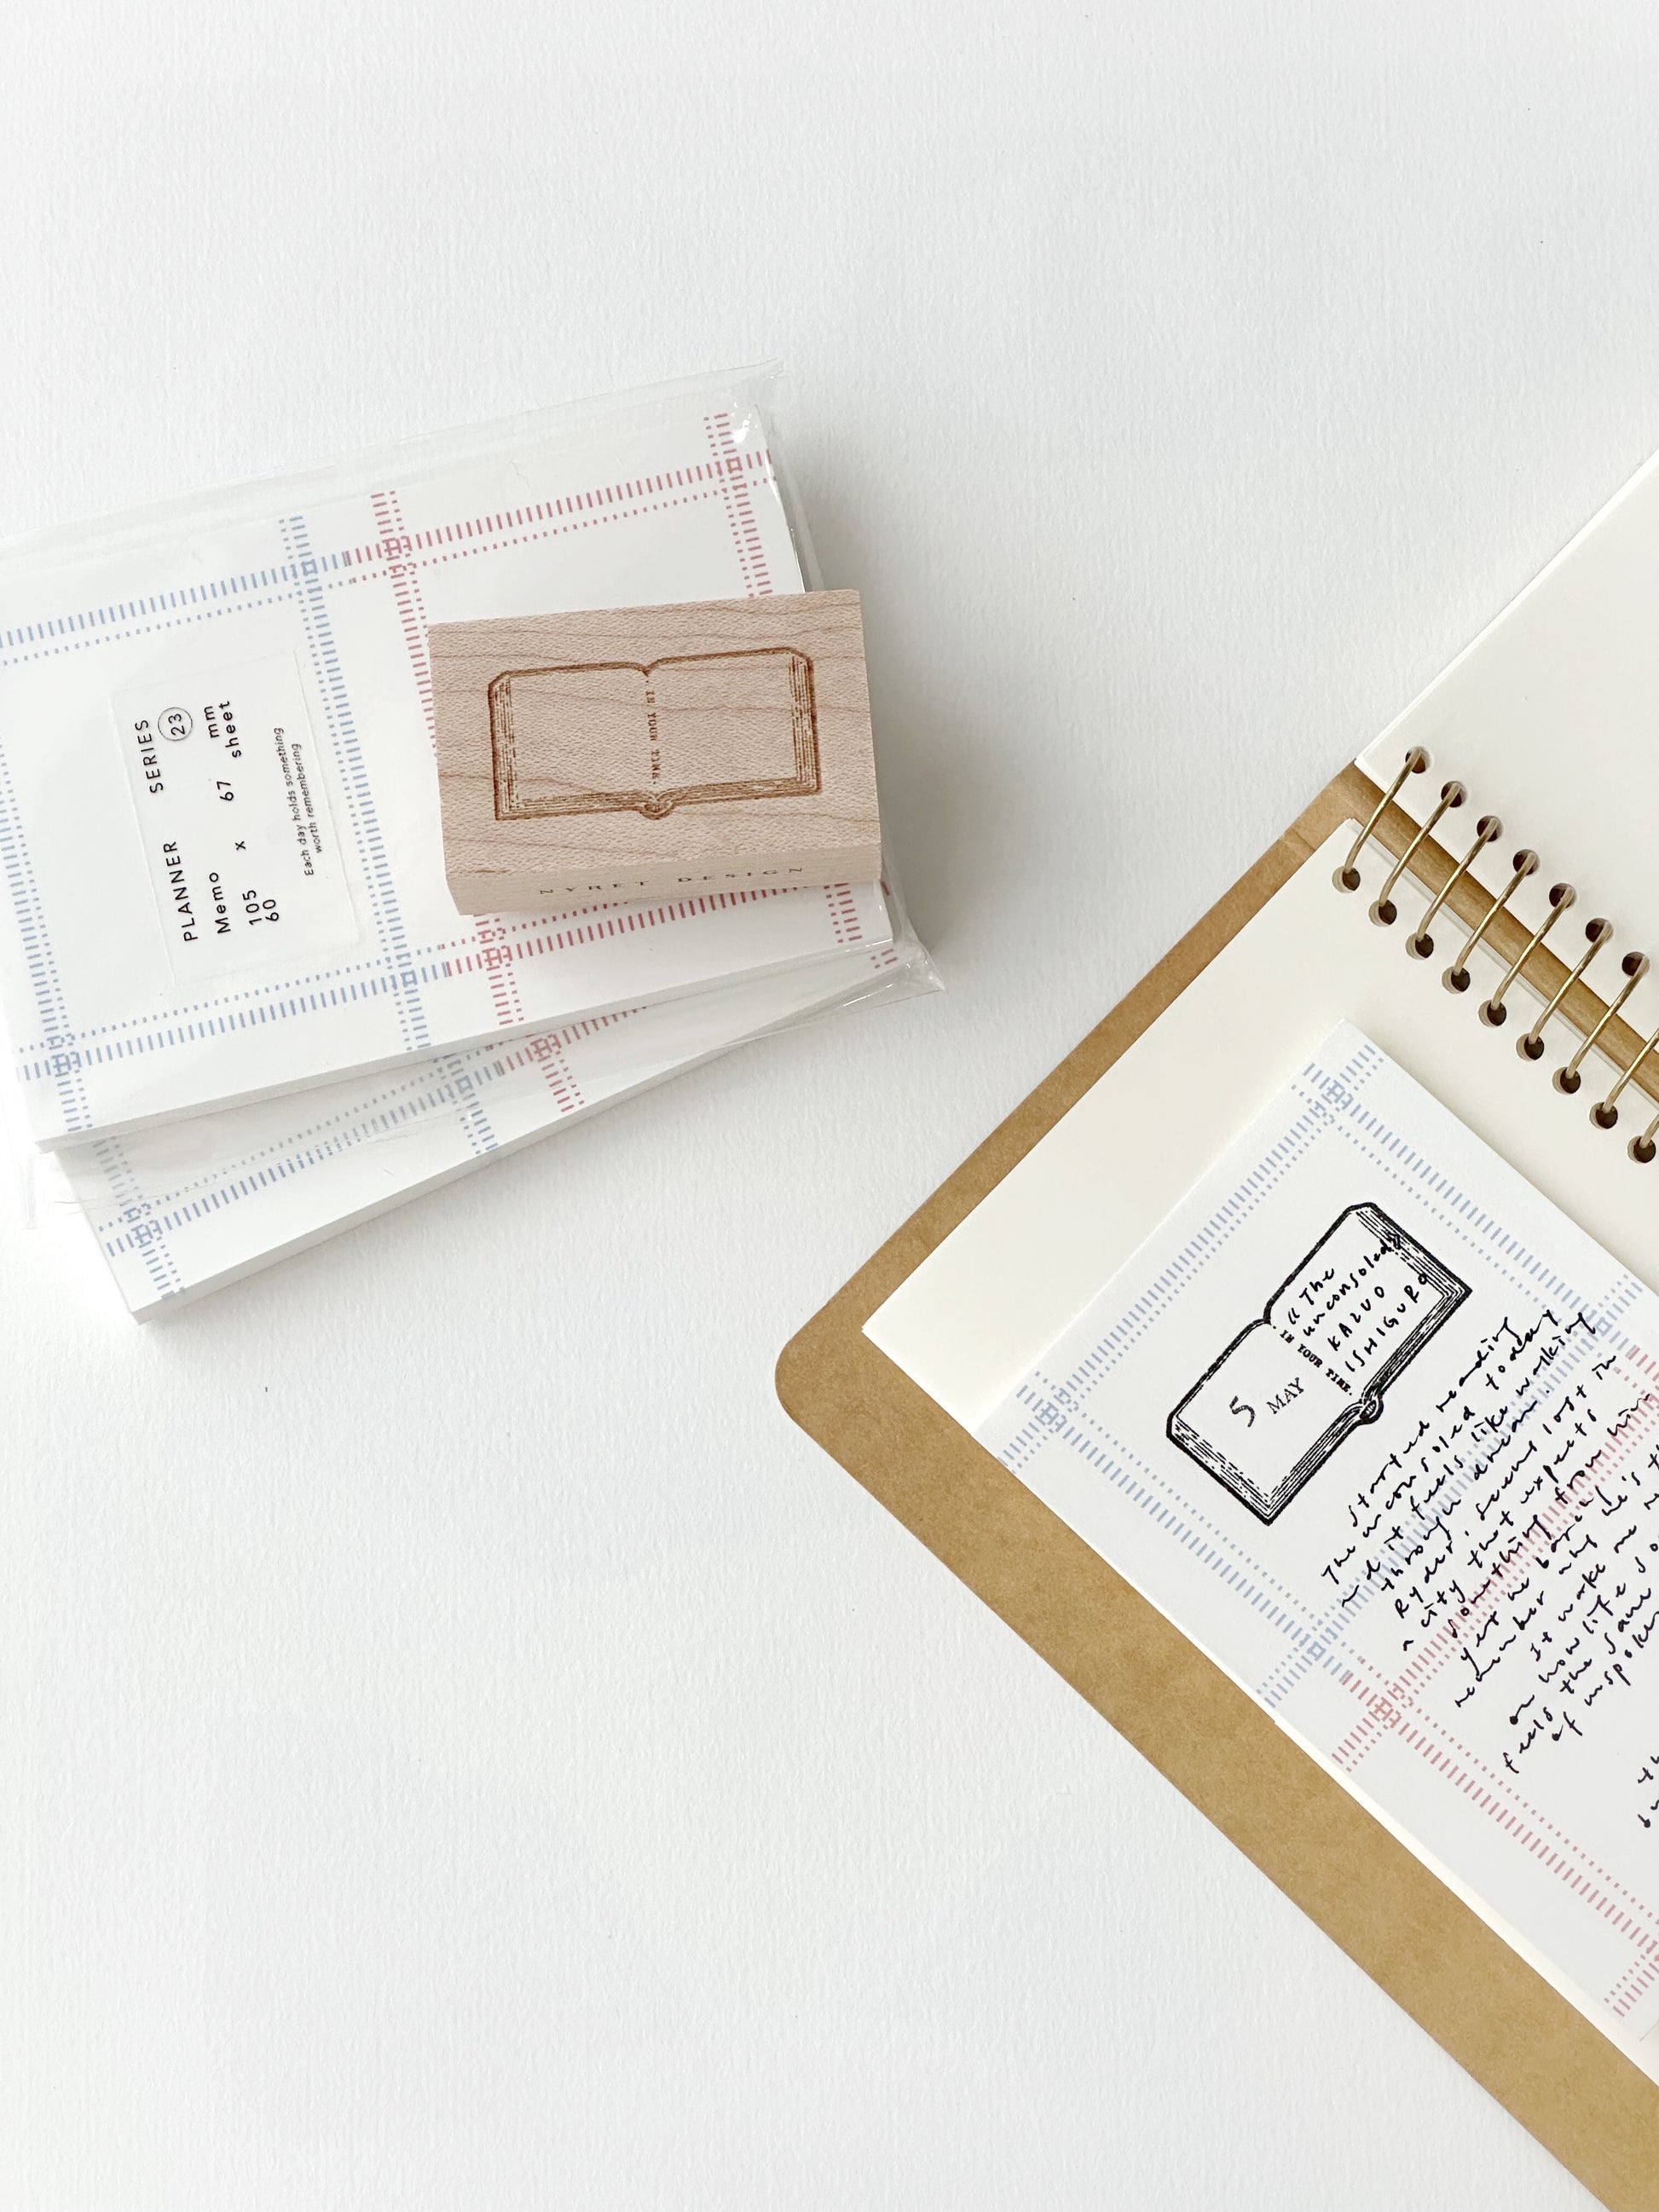 PLANNER SERIES
Memo 23
105 x 67 mm
60 sheet
Each day holds something
worth remembering
· IN YOUR TIME ·
NYRET DESIGN
5 MAY
· IN YOUR TIME ·
« The
unconsoled»
KAZUO
ISHIGURO
started reading
The unconsoled today
and it feels like walking
through dream.
Ryder, seems lost in
a city that expects
something from him
yet he barely
remember why he's
It make me
on how life
feels the same
of unspoken